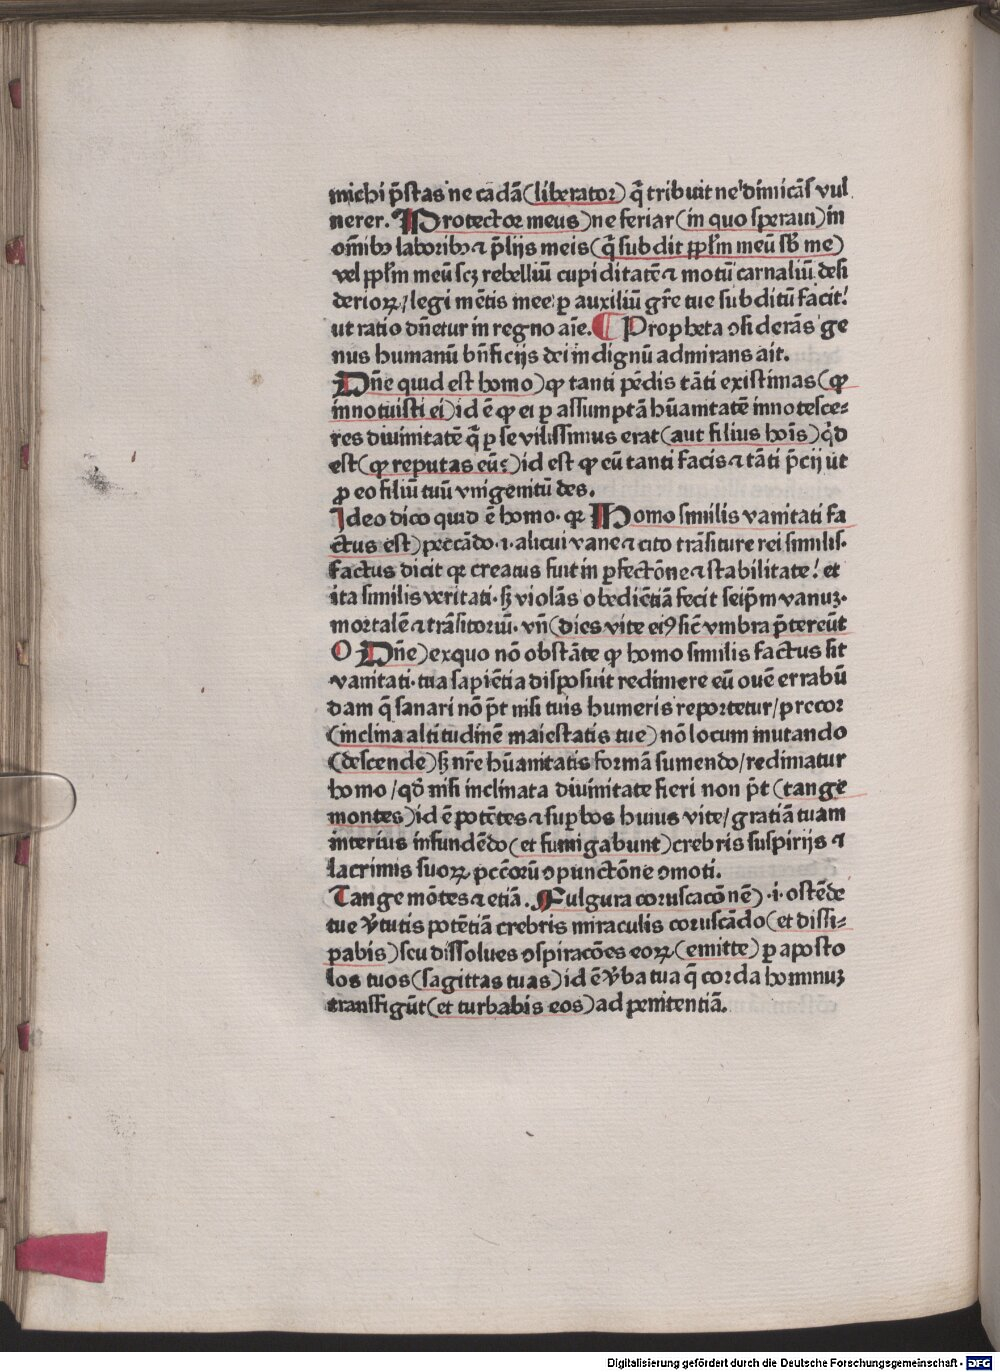 michi p̄stas ne cadā (liberator) q̄ tribuit ne dimicās vul
nerer. Protector meus) ne feriar (in quo speraui) in
om̄ibꝫ laboribꝫ ⁊ p̄lijs meis (q̄ subdit pp̄lm meū sb̄ me)
vel pp̄lm meū scꝫ rebelliū cupiditatē ⁊ motū carnaliū desi
derioꝝ / legi mētis mee ꝑ auxiliū gr̄e tue subditū facit!
ut ratio dn̄etur in regno aīe. ¶ Propheta ꝯsiderās ge
nus humanū bn̄ficijs dei indignū admirans ait.
Dn̄e quid est homo) ꝙ tanti pēdis tāti existimas (ꝙ
innotuisti ei) id ē ꝙ ei ꝑ assumptā hūanitatē innotesce⸗
res diuinitatē q̄ ꝑ se vilissimus erat (aut filius hoīs) q̄d
est (ꝙ reputas eū?) id est ꝙ eū tanti facis ⁊ tāti p̄cij ut
ꝓ eo filiū tuū vnigenitū des.
Ideo dico quid ē homo. qꝛ Homo similis vanitati fa
ctus est) peccādo .i. alicui vane ⁊ cito trāsiture rei similis.
factus dicit qꝛ creatus fuit in ꝑfectōne ⁊ stabilitate! et
ita similis veritati. sꝫ violās obediētiā fecit seip̄m vanuꝫ.
mortalē ⁊ trāsitoriū. vn̄ (dies vite eiꝰ sic̄ vmbra p̄tereūt
O Dn̄e) exquo nō obstāte ꝙ homo similis factus sit
vanitati. tua sapiētia disposuit redimere eū ouē errabū
dam q̄ sanari nō p̄t nisi tuis humeris reportetur / precor
(inclina altitudinē maiestatis tue) nō locum mutando
(descende) sꝫ nr̄e hūanitatis formā sumendo / redimatur
homo / qd̄ nisi inclinata diuinitate fieri non p̄t (tange
montes) id ē potētes ⁊ suꝑbos huius vite / gratiā tuam
interius infundēdo (et fumigabunt) crebris suspirijs ⁊
lacrimis suoꝝ pccōrū ꝯpunctōne ꝯmoti.
Tange mōtes ⁊ etiā. Fulgura coruscacōnē) .i. ostēde
tue v̄tutis potētiā crebris miraculis coruscādo (et dissi⸗
pabis) seu dissolues ꝯspiracōes eoꝝ (emitte) ꝑ aposto
los tuos (sagittas tuas) id ē v̄ba tua q̄ corda hominuꝫ
transfigūt (et turbabis eos) ad penitentiā.
Digitalisierung gefördert durch die Deutsche Forschungsgemeinschaft - DFG